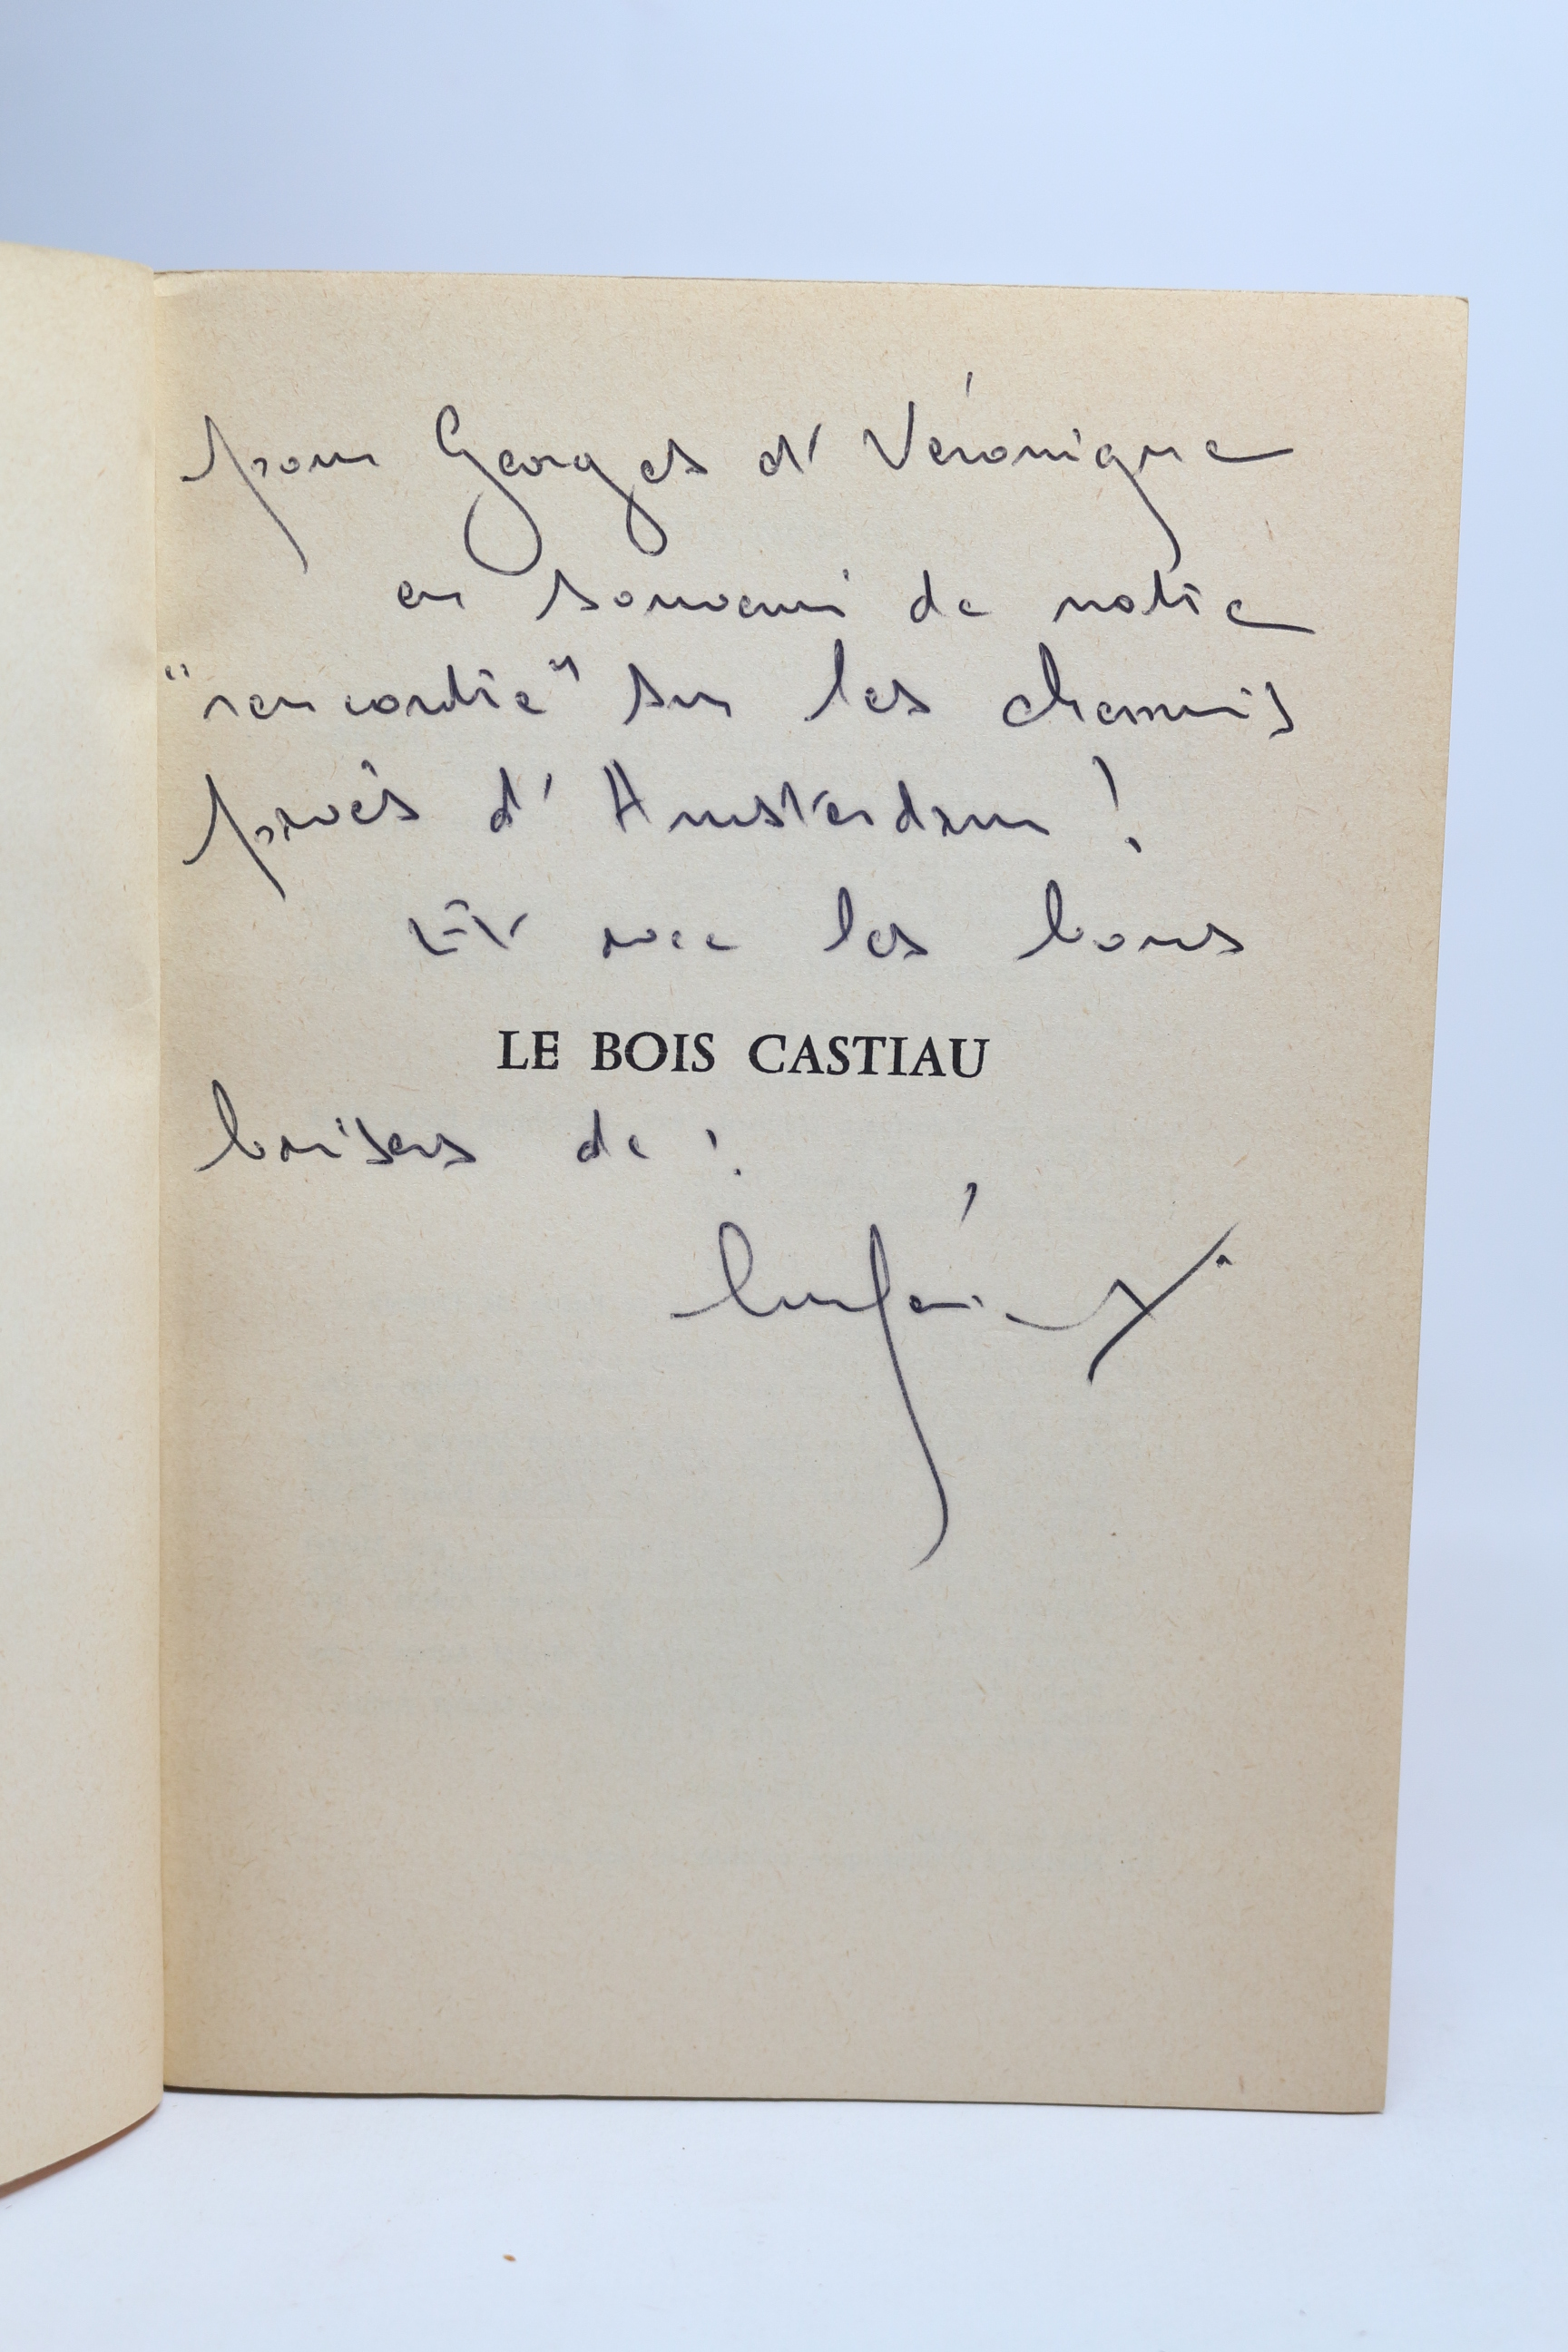 pour Georges et Véronique
en souvenir de notre
"rencontre" sur les chemins
pavés d'Amsterdam !
Et avec les bons
LE BOIS CASTIAU
baisers de :